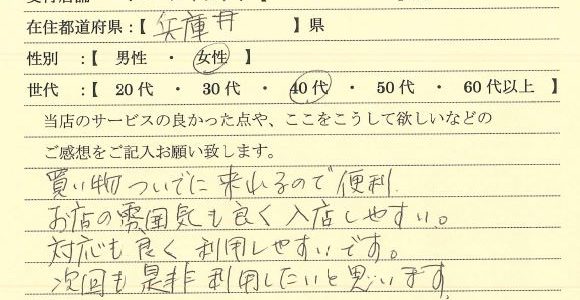 在住都道府県：【 兵庫 】県
性別 ：【 男性 ・ 女性 】
世代 ：【 20 代 ・ 30 代 ・ 40 代 ・ 50 代 ・ 60 代以上 】
当店のサービスの良かった点や、ここをこうして欲しいなどの
ご感想をご記入お願い致します。
買い物ついでに来れるので便利.
お店の雰囲気も良く入店しやすい。
対応も良く利用しやすいです。
次回も是非利用したいと思います